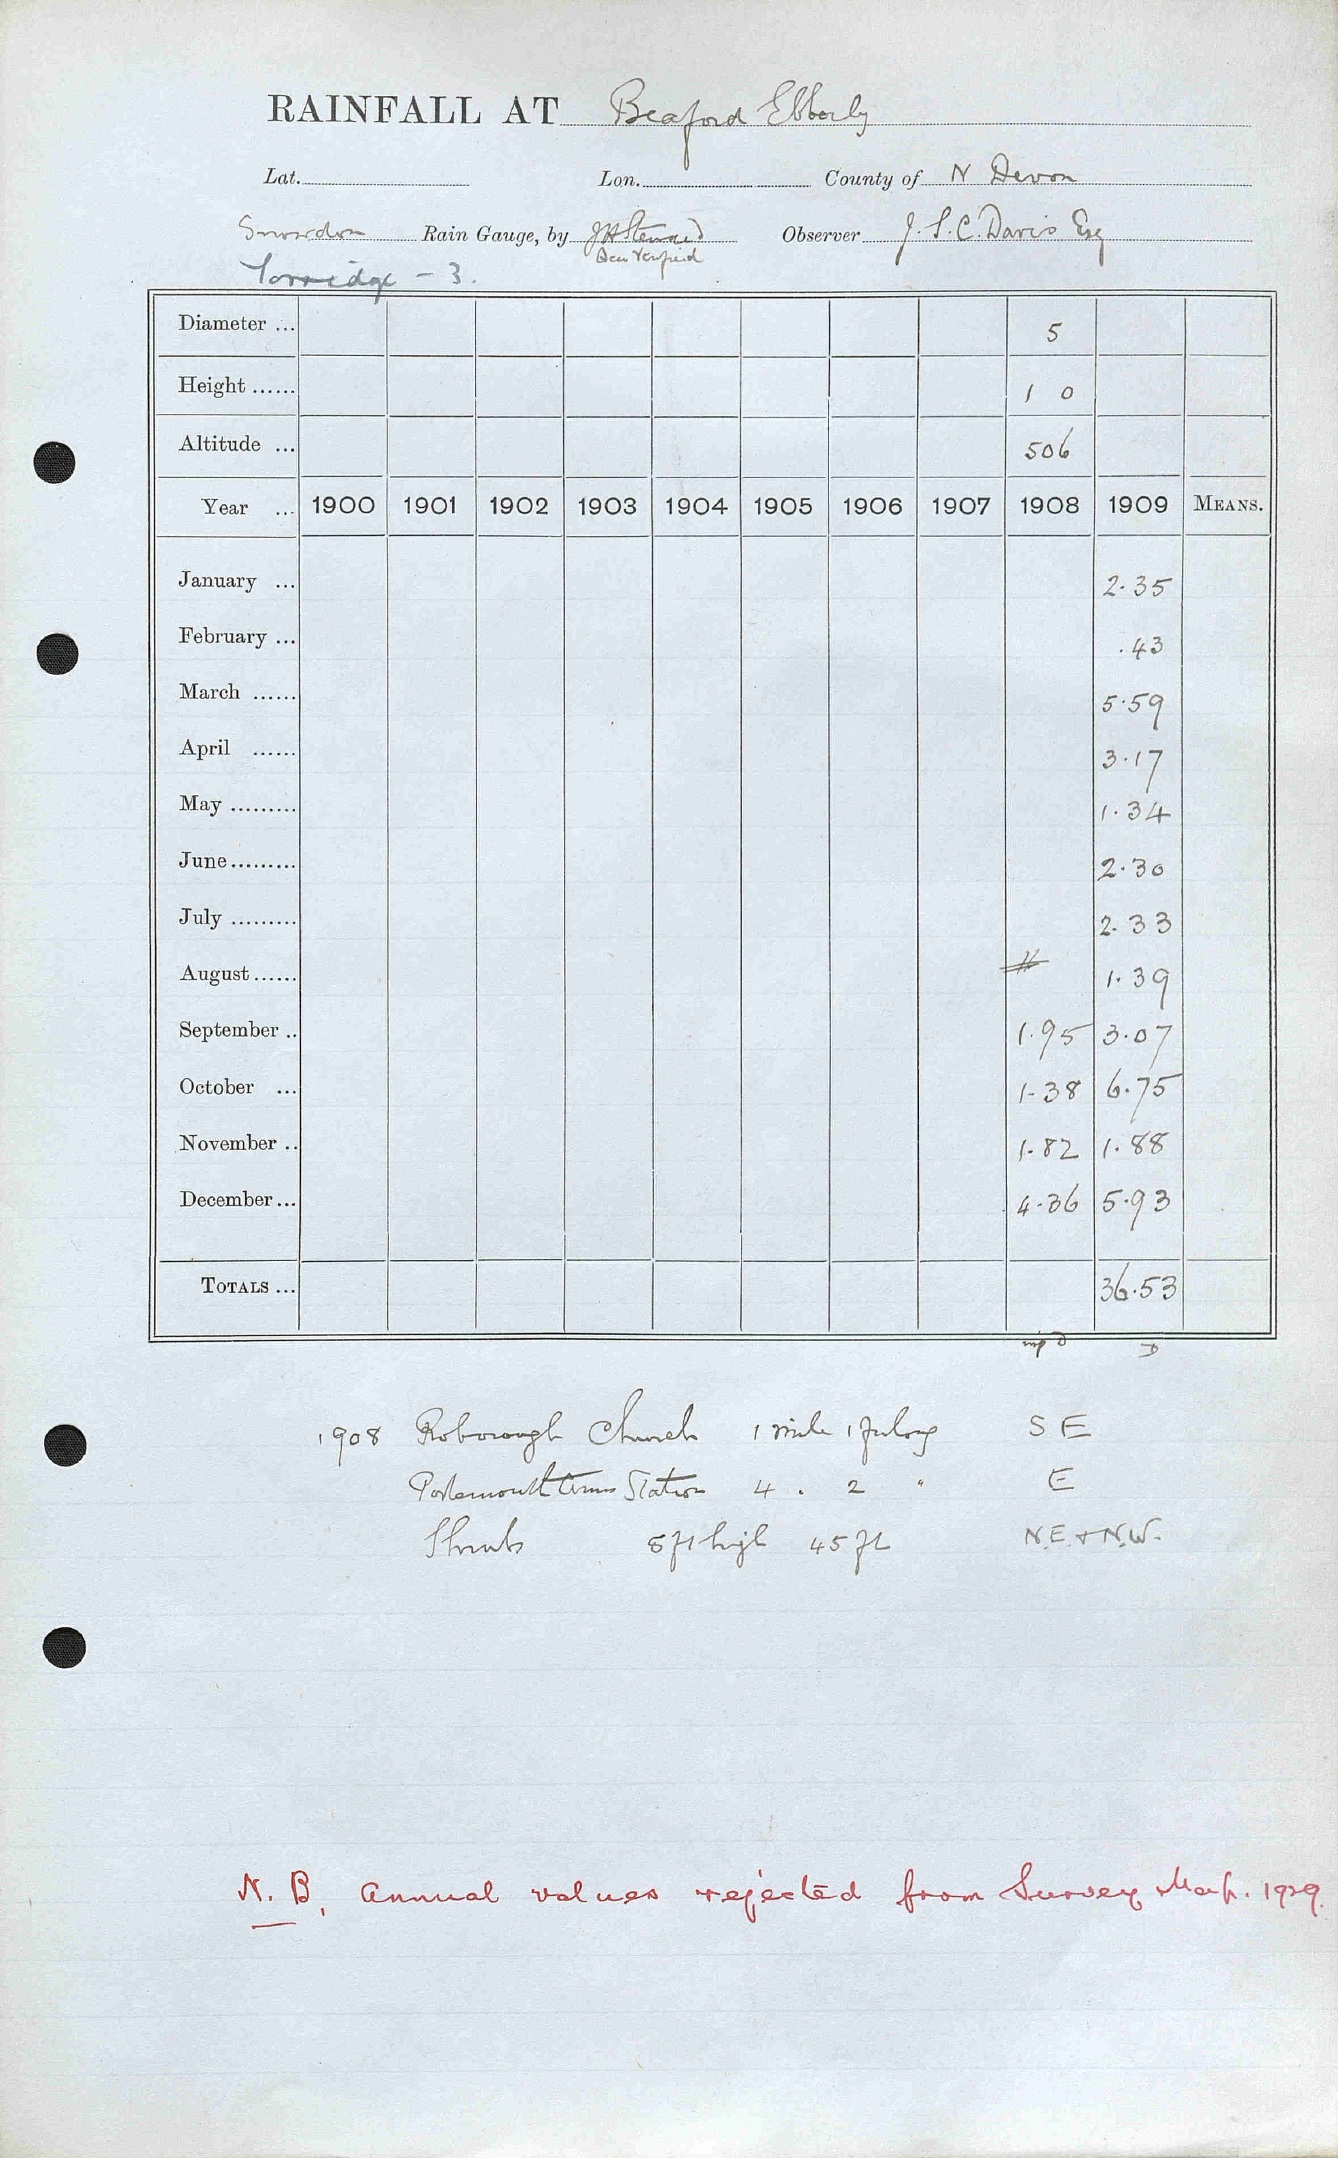 RAINFALL AT Beaford Ebberly
Lat. Lon. County of N Devon
Snowdon Rain Gauge, by J H Steward Observer J. S. C. Davis Esq
Torridge - 3.
Diameter ... 5
Height ...... 1 0
Altitude ... 506
Year ... 1900 1901 1902 1903 1904 1905 1906 1907 1908 1909 MEANS.
January ... 2.35
February ... .43
March ...... 5.59
April ...... 3.17
May ......... 1.34
June ......... 2.30
July ......... 2.33
August ...... 1.39
September .. 1.95 3.07
October ... 1.38 6.75
November .. 1.82 1.88
December ... 4.36 5.93
TOTALS ... 36.53
D D
1908 Roborough Church 1 mile 1 furlong S E
Portsmouth Arms Station 4 . 2 " E
Shrubs 8 ft high 45 ft N.E. + N.W.
N.B. Annual values rejected from Survey Map. 1929.